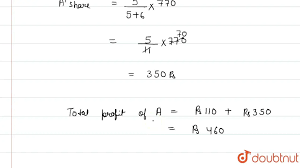 A' share = 5/5+6 x 770
= 5/11 x 770 70
= 350 Rs
Total profit of A = Rs 110 + Rs 350
= Rs 460
doubtnut